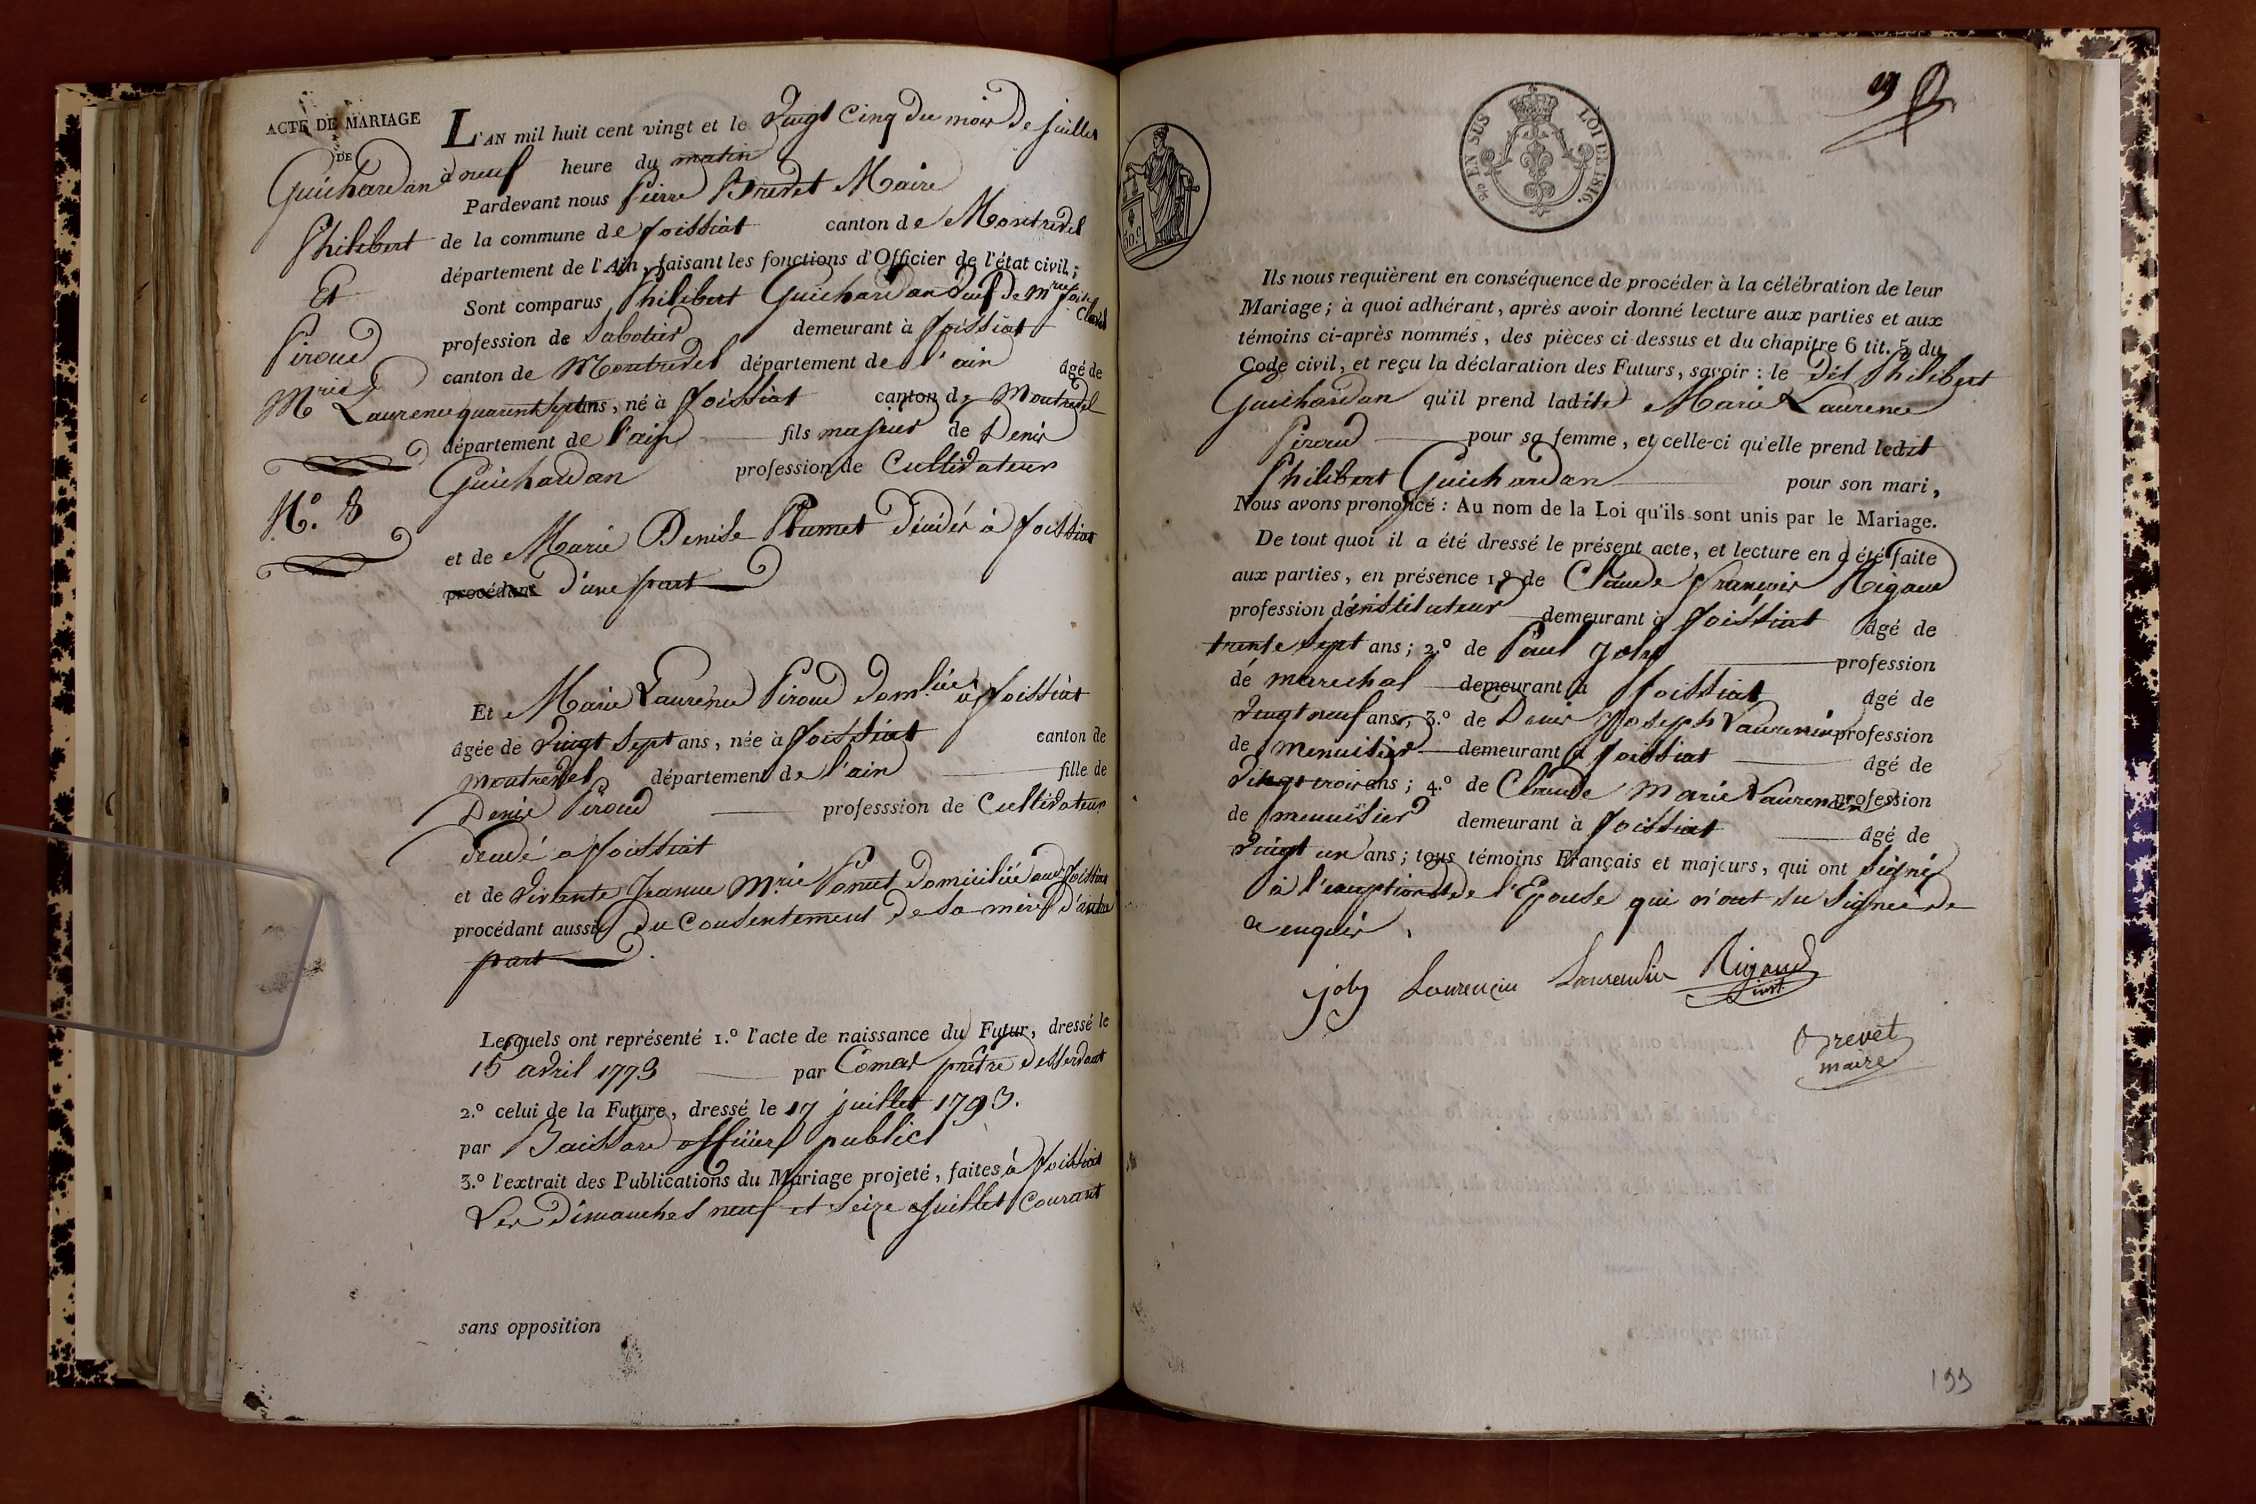 ACTE DE MARIAGE
DE
Guichardan
Philibert
Et
Piroud
Mrie
Laurence
N.° 8
L'AN mil huit cent vingt et le Vingt Cinq du mois de juillet
à neuf heure du matin
Pardevant nous Pierre Brevet Maire
de la commune de foissiat canton de Montrevel
département de l'Ain, faisant les fonctions d'Officier de l'état civil;
Sont comparus Philibert Guichardan veuf de Mrie
profession de Sabotier demeurant à foissiat
canton de Montrevel département de l'ain âgé de
quarent sept ans, né à foissiat canton de Montrevel
département de l'ain fils majeur de Denis
Guichardan profession de Cultivateur
et de Marie Denise Plumet décédés à foissiat
procédant d'une part
Et Marie Laurence Piroud domliée à foissiat
âgée de vingt sept ans, née à foissiat canton de
montrevel département de l'ain fille de
Denis Piroud professsion de Cultivateur
décédé a foissiat
et de vivante Jeanne Mrie Ponet domiciliée foissiat
procédant aussi du Consentement de sa mère d'autre
part
Lesquels ont représenté 1.° l'acte de naissance du Futur, dressé le
15 avril 1773 par Comas prêtre desservant
2.° celui de la Future, dressé le 17 juillet 1793.
par officier public
3.° l'extrait des Publications du Mariage projeté, faites à foissiat
Les dimanches neuf et seize Juillet Courant
sans opposition
EN SUS LOI DE 1816.
50.c
Ils nous requièrent en conséquence de procéder à la célébration de leur
Mariage; à quoi adhérant, après avoir donné lecture aux parties et aux
témoins ci-après nommés, des pièces ci dessus et du chapitre 6 tit. 5 du
Code civil, et reçu la déclaration des Futurs, savoir: le dit Philibert
Guichardan qu'il prend ladite Marie Laurence
Piroud pour sa femme, et celle-ci qu'elle prend ledit
Philibert Guichardan pour son mari,
Nous avons prononcé: Au nom de la Loi qu'ils sont unis par le Mariage.
De tout quoi il a été dressé le présent acte, et lecture en a été faite
aux parties, en présence 1.° de Claude François Rigaud
profession d'instituteur demeurant à foissiat âgé de
trente sept ans; 2.° de Paul Joly profession
de marechal demeurant à foissiat âgé de
vingt neuf ans, 3.° de Denis Joseph Laurencin profession
de menuisier demeurant à foissiat âgé de
vingt trois ans; 4.° de Claude Marie Laurencin profession
de menuisier demeurant à foissiat âgé de
vingt un ans; tous témoins Français et majeurs, qui ont signé
à l'exception de l'Epouse qui n'ont su signer de
ce enquis.
joly Laurencin Laurencin Rigaud
inst
Brevet
maire
193